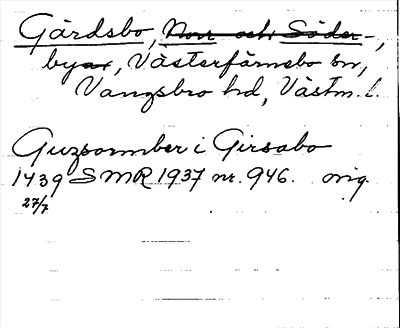 Gärdsbo, Norr och Söder-,
byar, Västerfärnebo sn,
Vangsbro hd, Västm. l.
Guzsormber i Girsabo
1439 SMR 1937 nr. 946. orig.
27/7